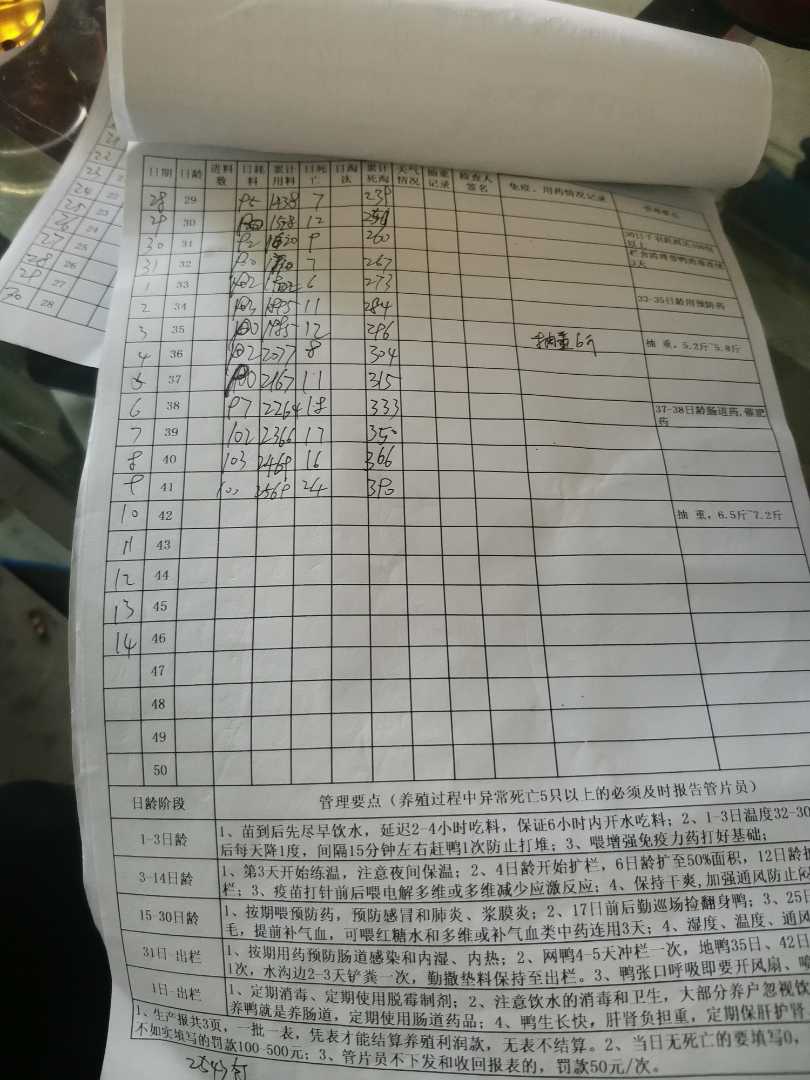 日期 日龄 进料数 日耗料 累计用料 日死亡 日淘汰 累计死淘 天气情况 抽重记录 检查人签名 免疫、用药情况记录 管理要点
28 29 95 1438 7 239
29 30 1558 12
30 31 92 9 260
31 32 7 267
1 33 102 6 273
2 34 103 1895 11 284 32-35日龄用预防药
3 35 100 1985 12 296
4 36 102 2077 8 304 抽重6斤 抽 重，5.2斤~5.8斤
5 37 100 2167 11 315
6 38 97 2264 18 333 37-38日龄肠道药,催肥药
7 39 102 2366 17 350
8 40 103 2469 16 366
9 41 100 2569 24 390
10 42 抽 重，6.5斤~7.2斤
11 43
12 44
13 45
14 46
47
48
49
50
日龄阶段 管理要点（养殖过程中异常死亡5只以上的必须及时报告管片员）
1-3日龄 1、苗到后先尽早饮水，延迟2-4小时吃料，保证6小时内开水吃料；2、1-3日温度32-30
后每天降1度，间隔15分钟左右赶鸭1次防止打堆；3、喂增强免疫力药打好基础；
3-14日龄 1、第3天开始练温，注意夜间保温；2、4日龄开始扩栏，6日龄扩至50%面积，12日龄扩
栏；3、疫苗打针前后喂电解多维或多维减少应激反应；4、保持干爽,加强通风防止闷
15-30日龄 1、按期喂预防药，预防感冒和肺炎、浆膜炎；2、17日前后勤巡场捡翻身鸭；3、25日
毛，提前补气血，可喂红糖水和多维或补气血类中药连用3天；4、湿度、温度、通风
31日-出栏 1、按期用药预防肠道感染和内湿、内热；2、网鸭4-5天冲栏一次，地鸭35日、42日
1次，水沟边2-3天铲粪一次，勤撒垫料保持至出栏。3、鸭张口呼吸即要开风扇、喷
1日-出栏 1、定期消毒、定期使用脱霉制剂；2、注意饮水的消毒和卫生，大部分养户忽视饮
养鸭就是养肠道，定期使用肠道药品；4、鸭生长快，肝肾负担重，定期保肝护肾
1、生产报共3页，一批一表，凭表才能结算养殖利润款，无表不结算。2、当日无死亡的要填写0，
不如实填写的罚款100-500元；3、管片员不下发和收回报表的，罚款50元/次。
22
23
24 22
25 23
26 24
27 25
28 26
29 27
30 28